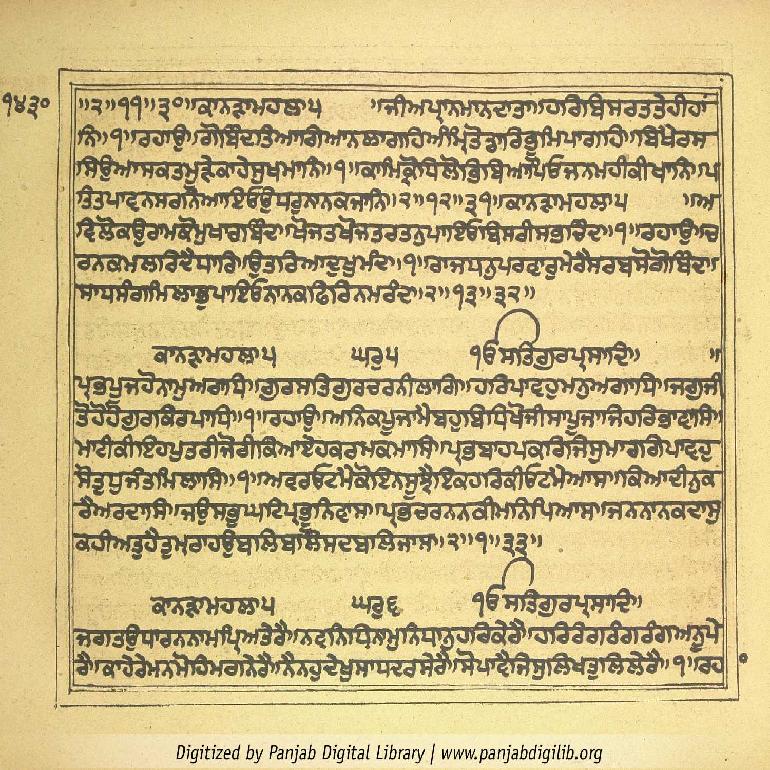 ੧੪੩੦
॥੨॥੧੧॥੩੦॥ਕਾਨੜਾਮਹਲਾ੫ ॥ਜੀਅਪ੍ਰਾਨਮਾਨਦਾਤਾ॥ਹਰਿਬਿਸਰਤਤੇਹੀਹਾ
ਨਿ॥੧॥ਰਹਾਉ॥ਗੋਬਿੰਦਤਿਆਗਿਆਨਲਾਗਹਿਅੰਮ੍ਰਿਤੋਡਾਰਿਭੂਮਿਪਾਗਹਿ॥ਬਿਖੈਰਸ
ਸਿਉਆਸਕਤਮੂੜੇਕਾਹੇਸੁਖਮਾਨਿ॥੧॥ਕਾਮਿਕ੍ਰੋਧਿਲੋਭਿਬਿਆਪਿਓਜਨਮਹੀਕੀਖਾਨਿ॥ਪ
ਤਿਤਪਾਵਨਸਰਨਿਆਇਓਉਧਰੁਨਾਨਕਜਾਨਿ॥੨॥੧੨॥੩੧॥ਕਾਨੜਾਮਹਲਾ੫ ॥ਅ
ਵਿਲੋਕਉਰਾਮਕੋਮੁਖਾਰਬਿੰਦ॥ਖੋਜਤਖੋਜਤਰਤਨੁਪਾਇਓਬਿਸਰੀਸਭਚਿੰਦ॥੧॥ਰਹਾਉ॥ਚ
ਰਨਕਮਲਰਿਦੈਧਾਰਿ॥ਉਤਰਿਆਦੁਖੁਮੰਦ॥੧॥ਰਾਜਧਨੁਪਰਵਾਰੁਮੇਰੈਸਰਬਸੋਗੋਬਿੰਦ॥
ਸਾਧਸੰਗਮਿਲਾਭੁਪਾਇਓਨਾਨਕਫਿਰਿਨਮਰੰਦ॥੨॥੧੩॥੩੨॥
ਕਾਨੜਾਮਹਲਾ੫ ਘਰੁ੫ ੴਸਤਿਗੁਰਪ੍ਰਸਾਦਿ॥ ॥
ਪ੍ਰਭਪੂਜਹੋਨਾਮੁਅਰਾਧਿ॥ਗੁਰਸਤਿਗੁਰਚਰਨੀਲਾਗਿ॥ਹਰਿਪਾਵਹੁਮਨੁਅਗਾਧਿ॥ਜਗੁਜੀ
ਤੋਹੋਹੋਗੁਰਕਿਰਪਾਧਿ॥੧॥ਰਹਾਉ॥ਅਨਿਕਪੂਜਾਮੈਬਹੁਬਿਧਿਖੋਜੀਸਾਪੂਜਾਜਿਹਰਿਭਾਵਾਸਿ॥
ਮਾਟੀਕੀਇਹਪੁਤਰੀਜੋਰੀਕਿਆਏਹਕਰਮਕਮਾਸਿ॥ਪ੍ਰਭਬਾਹਪਕਰਿਜਿਸੁਮਾਰਗਿਪਾਵਹੁ
ਸੋਤੁਧੁਜੰਤਮਿਲਾਸਿ॥੧॥ਅਵਰਓਟਮੈਕੋਇਨਸੂਝੈਇਕਹਰਿਕੀਓਟਮੈਆਸ॥ਕਿਆਦੀਨੁਕ
ਰੇਅਰਦਾਸਿ॥ਜਉਸਭਘਟਿਪ੍ਰਭੂਨਿਵਾਸ॥ਪ੍ਰਭਚਰਨਨਕੀਮਨਿਪਿਆਸ॥ਜਨਨਾਨਕਦਾਸੁ
ਕਹੀਅਤੁਹੈਤੁਮਰਾਹਉਬਲਿਬਲਿਸਦਬਲਿਜਾਸ॥੨॥੧॥੩੩॥
ਕਾਨੜਾਮਹਲਾ੫ ਘਰੁ੬ ੴਸਤਿਗੁਰਪ੍ਰਸਾਦਿ॥
ਜਗਤਉਧਾਰਨਨਾਮਪ੍ਰਿਅਤੇਰੈ॥ਨਵਨਿਧਿਨਾਮੁਨਿਧਾਨੁਹਰਿਕੇਰੈ॥ਹਰਿਰੰਗਰੰਗਰੰਗਅਨੂਪੇ
ਰੈ॥ਕਾਹੇਰੇਮਨਮੋਹਿਮਗਨੇਰੈ॥ਨੈਨਹੁਦੇਖੁਸਾਧਦਰਸੇਰੈ॥ਸੋਪਾਵੈਜਿਸੁਲਿਖਤੁਲਿਲੇਰੈ॥੧॥ਰਹ
Digitized by Panjab Digital Library | www.panjabdigilib.org